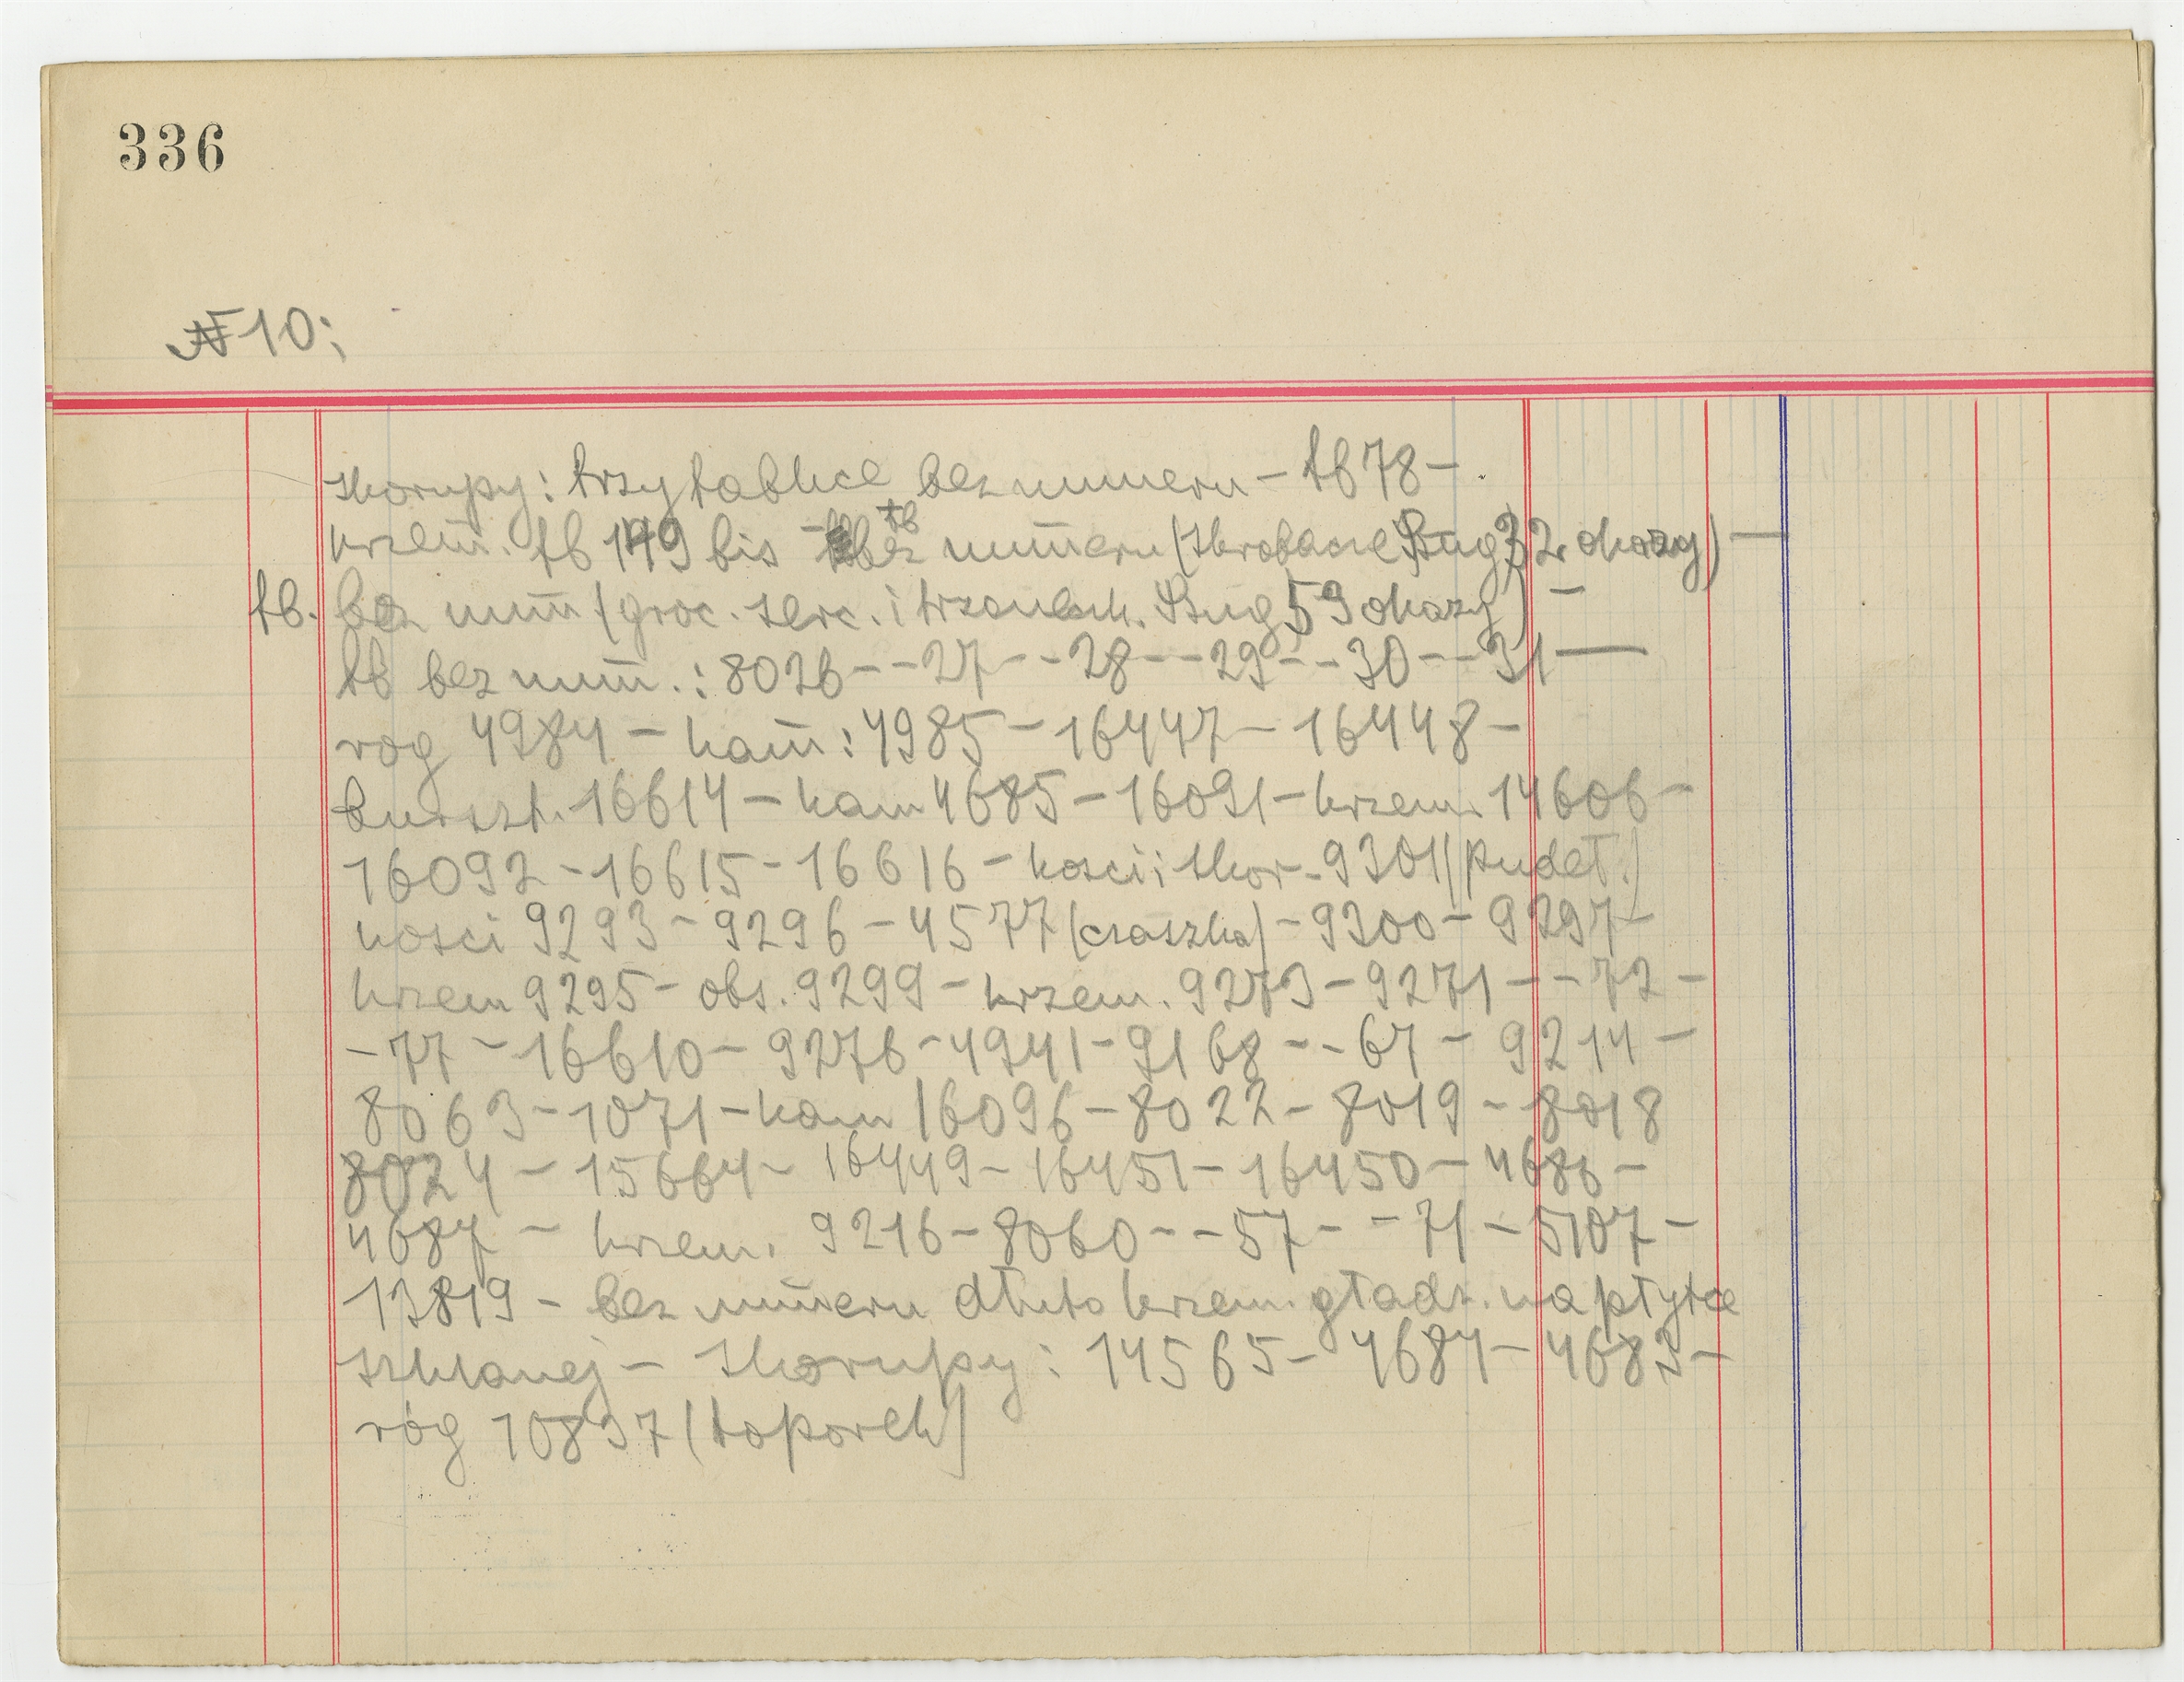 336
№ 10;
skorupy: trzy tablice bez numeru – tb 78 –
krzem̄. tb 149 bis – tb bez num̄eru (skrobacze Bug 32 okazy) –
tb. bez num̄ (groc. serc. i trzoneczk. Bug 59 okazy) –
tb bez num̄.: 8026 – – 27 – – 28 – – 29 – – 30 – – 31 –
rog 4984 – kam̄: 4985 – 16447 – 16448 –
burszt. 16614 – kam 4685 – 16091 – krzem. 14606 –
16092 – 16615 – 16616 – kosci i skor. 9301 (pudeł.)
kosci 9293 – 9296 – 4577 (czaszka) – 9300 – 9297 –
krzem 9295 – obs. 9299 – krzem. 9273 – 9271 – – 72 –
– 77 – 16610 – 9276 – 4941 – 9168 – – 67 – 9214 –
8063 – 1071 – kam 16096 – 8022 – 8019 – 8018
8024 – 15664 – 16449 – 16451 – 16450 – 4686 –
4687 – krzem. 9216 – 8060 – – 57 – – 71 – 5107 –
13819 – bez num̄eru dłuto krzem. gładz. na płytce
szklanej – skorupy: 14565 – 4684 – 4683 –
róg 10837 (toporek)